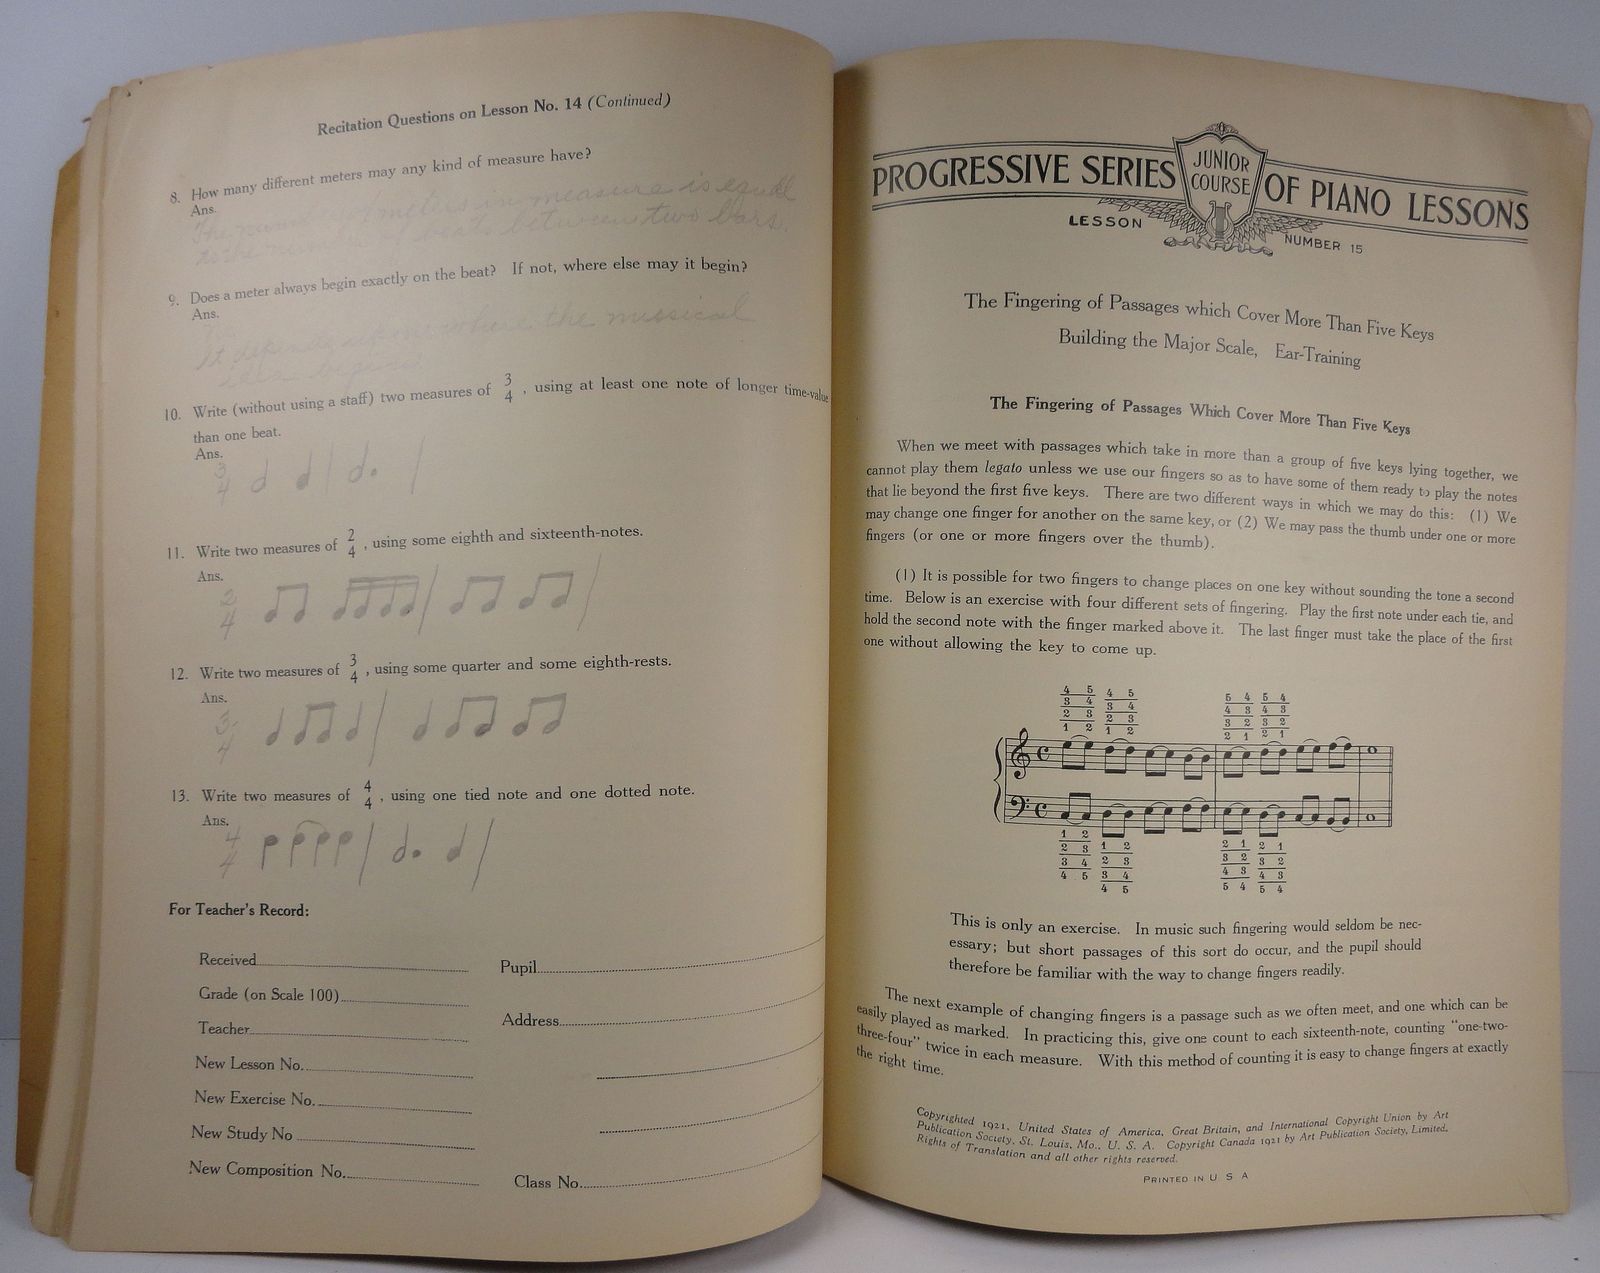 Recitation Questions on Lesson No. 14 (Continued)
8. How many different meters may any kind of measure have?
Ans.
The meters in measure is equal
to the of beats between two bars.
9. Does a meter always begin exactly on the beat? If not, where else may it begin?
Ans.
It depends upon where the mussical
idea begins
10. Write (without using a staff) two measures of 3/4, using at least one note of longer time-value
than one beat.
Ans.
3/4
11. Write two measures of 2/4, using some eighth and sixteenth-notes.
Ans.
2/4
12. Write two measures of 3/4, using some quarter and some eighth-rests.
Ans.
3/4
13. Write two measures of 4/4, using one tied note and one dotted note.
Ans.
4/4
For Teacher's Record:
Received
Grade (on Scale 100)
Teacher
New Lesson No.
New Exercise No.
New Study No
New Composition No.
Pupil
Address
Class No.
PROGRESSIVE SERIES JUNIOR COURSE OF PIANO LESSONS
LESSON NUMBER 15
The Fingering of Passages which Cover More Than Five Keys
Building the Major Scale, Ear-Training
The Fingering of Passages Which Cover More Than Five Keys
When we meet with passages which take in more than a group of five keys lying together, we
cannot play them legato unless we use our fingers so as to have some of them ready to play the notes
that lie beyond the first five keys. There are two different ways in which we may do this: (1) We
may change one finger for another on the same key, or (2) We may pass the thumb under one or more
fingers (or one or more fingers over the thumb).
(1) It is possible for two fingers to change places on one key without sounding the tone a second
time. Below is an exercise with four different sets of fingering. Play the first note under each tie, and
hold the second note with the finger marked above it. The last finger must take the place of the first
one without allowing the key to come up.
4 5 4 5 5 4 5 4
3 4 3 4 4 3 4 3
2 3 2 3 3 2 3 2
1 2 1 2 2 1 2 1
1 2 1 2 2 1 2 1
2 3 2 3 3 2 3 2
3 4 3 4 4 3 4 3
4 5 4 5 5 4 5 4
This is only an exercise. In music such fingering would seldom be nec-
essary; but short passages of this sort do occur, and the pupil should
therefore be familiar with the way to change fingers readily.
The next example of changing fingers is a passage such as we often meet, and one which can be
easily played as marked. In practicing this, give one count to each sixteenth-note, counting "one-two-
three-four" twice in each measure. With this method of counting it is easy to change fingers at exactly
the right time.
Copyrighted 1921, United States of America, Great Britain, and International Copyright Union by Art
Publication Society, St. Louis, Mo., U. S. A. Copyright Canada 1921 by Art Publication Society, Limited.
Rights of Translation and all other rights reserved.
PRINTED IN U S A